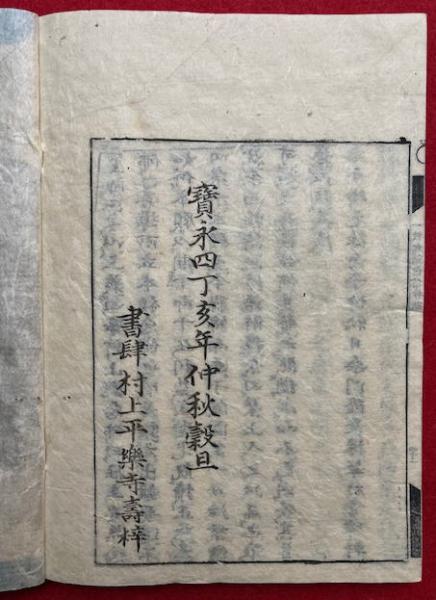 寶永四丁亥年仲秋穀旦
書肆村上平樂寺壽梓